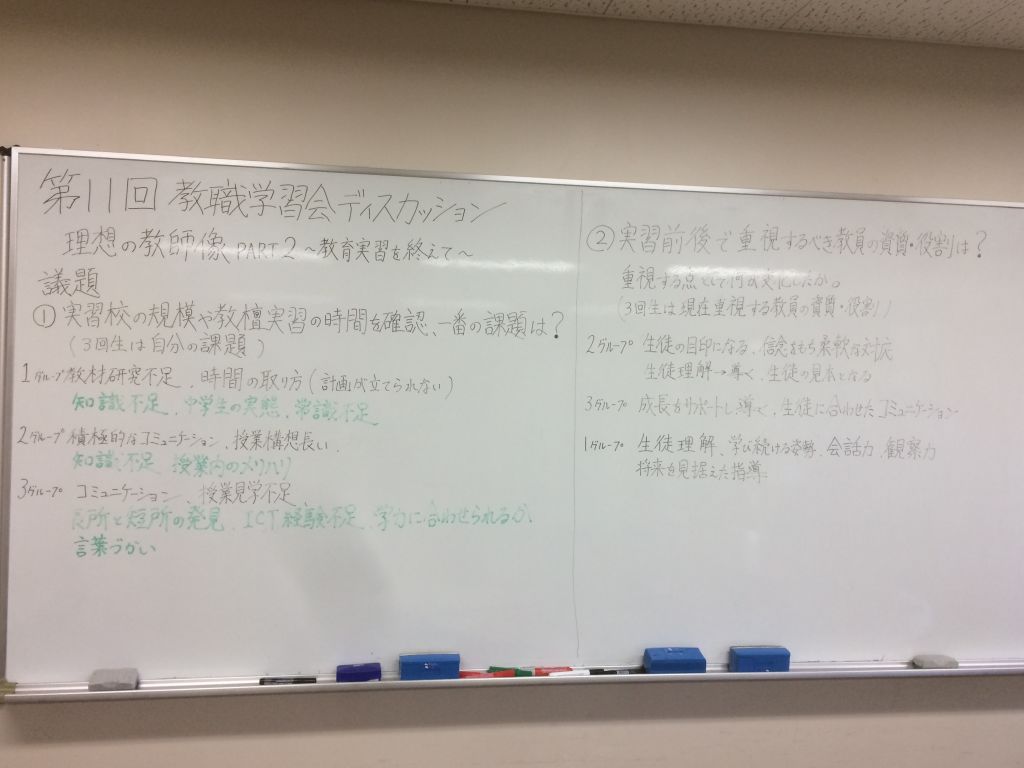 第11回 教職学習会ディスカッション
理想の教師像 PART2 ～教育実習を終えて～
議題
① 実習校の規模や教壇実習の時間を確認、一番の課題は？
(3回生は自分の課題)
1グループ 教材研究不足、時間の取り方(計画が立てられない)
知識不足、中学生の実態、常識不足
2グループ 積極的なコミュニケーション、授業構想長い、
知識不足 授業内のメリハリ
3グループ コミュニケーション、授業見学不足
長所と短所の発見、ICT経験不足、学力に合わせられるか、
言葉づかい
② 実習前後で重視するべき教員の資質・役割は？
重視する点として何が変化したか。
(3回生は現在重視する教員の資質・役割)
2グループ 生徒の目印になる、信念をもち柔軟な対応
生徒理解→導く、生徒の見本となる
3グループ 成長をサポートし導く、生徒に合わせたコミュニケーション
1グループ 生徒理解、学び続ける姿勢、会話力、観察力
将来を見据えた指導